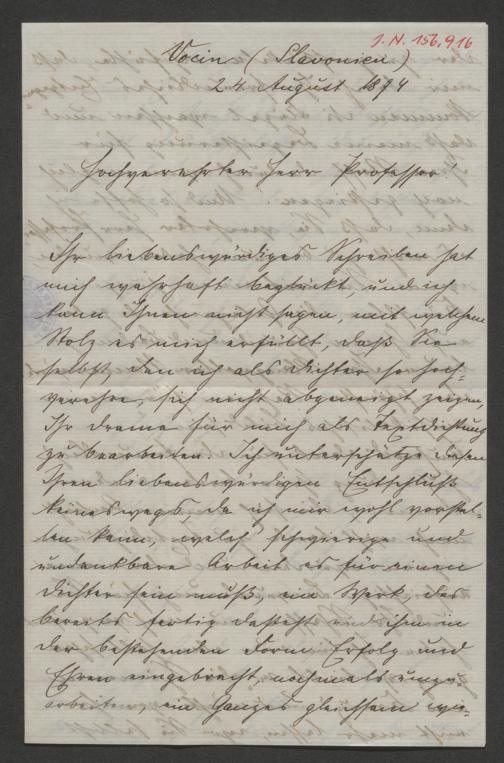 J. N. 156.916
Vocin (Slavonien)
24 August 1894
Hochverehrter Herr Professor!
Ihr liebenswürdiges Schreiben hat
mich wahrhaft beglückt, und ich
kann Ihnen nicht sagen, mit welchem
Stolz es mich erfüllt, daß Sie
selbst, den ich als Dichter so hoch-
verehre, sich nicht abgeneigt zeigen,
Ihr Drama für mich als Textdichtung
zu bearbeiten. Ich unterschätze diesen
Ihren liebenswürdigen Entschluß
keineswegs, da ich mir wohl vorstel-
len kann, welch' schwierige und
undankbare Arbeit es für einen
Dichter sein muß, ein Werk, das
bereits fertig dasteht und ihm in
der bestehenden Form Erfolg und
Ehren eingebracht, nochmals umzu-
arbeiten, ein Ganzes gleichsam